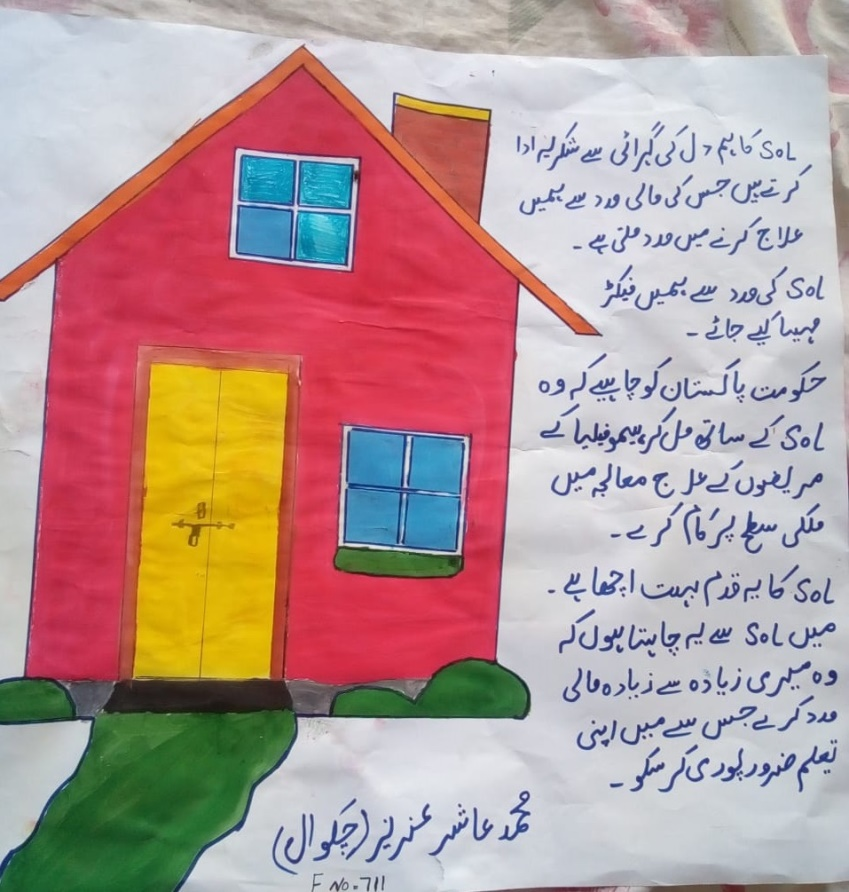 SOL کا ہم دل کی گہرائی سے شکریہ ادا
کرتے ہیں جس کی مالی مدد سے ہمیں
علاج کرنے میں مدد ملتی ہے۔
SOL کی مدد سے ہمیں فیکٹر
مہیا کیے جائے۔
حکومت پاکستان کو چاہیے کہ وہ
SOL کے ساتھ مل کر ہیموفیلیا کے
مریضوں کے علاج معالجہ میں
ملکی سطح پر کام کرے۔
SOL کا یہ قدم بہت اچھا ہے۔
میں SOL سے یہ چاہتا ہوں کہ
وہ میری زیادہ سے زیادہ مالی
مدد کرے جس سے میں اپنی
تعلم ضرور پوری کر سکو۔
محمد عاشر عزیز (چکوال)
F No. 711